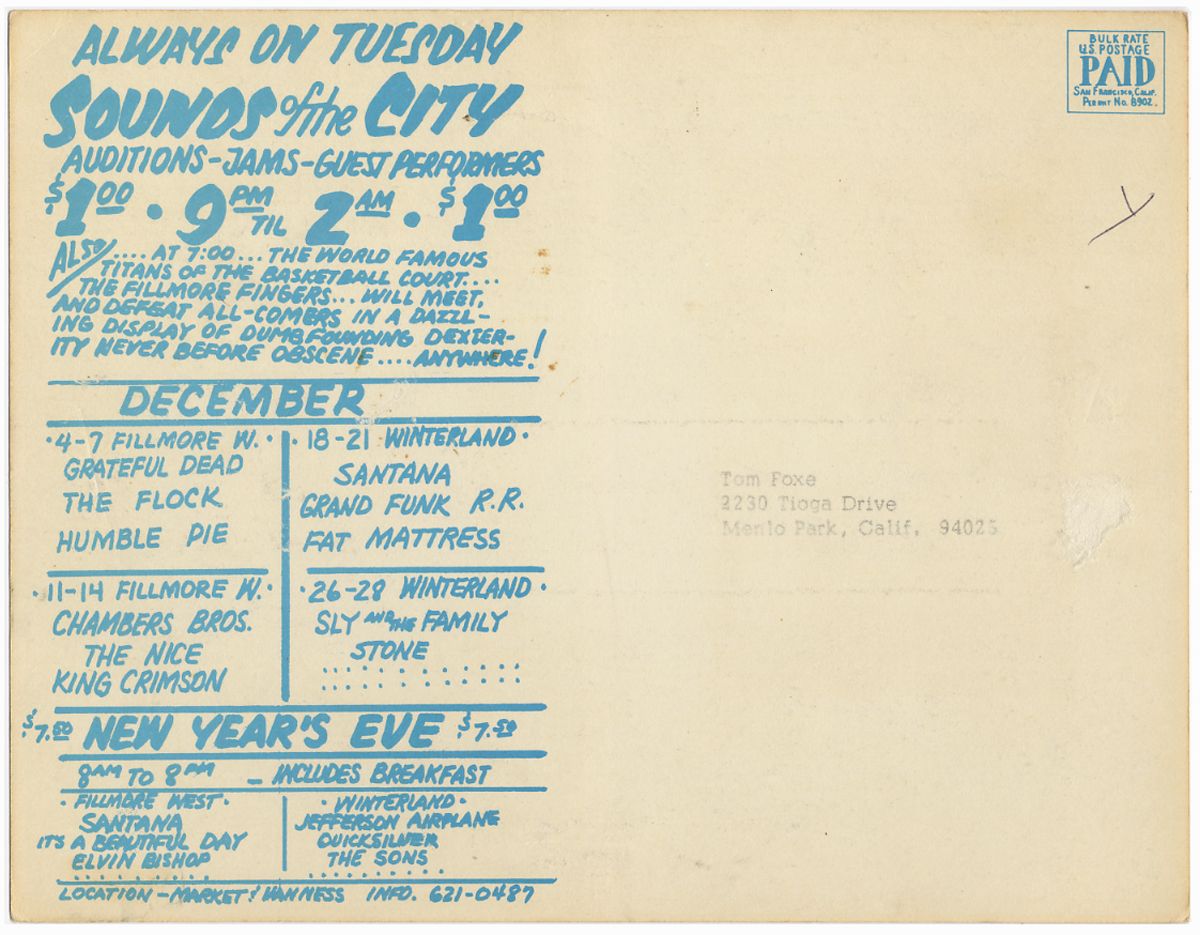 ALWAYS ON TUESDAY
SOUNDS of the CITY
AUDITIONS-JAMS-GUEST PERFORMERS
$1.00 · 9 PM TIL 2 AM · $1.00
ALSO .... AT 7:00... THE WORLD FAMOUS
TITANS OF THE BASKETBALL COURT....
THE FILLMORE FINGERS... WILL MEET,
AND DEFEAT ALL-COMERS IN A DAZZL-
ING DISPLAY OF DUMBFOUNDING DEXTER-
ITY NEVER BEFORE OBSCENE .... ANYWHERE!
DECEMBER
· 4-7 FILLMORE W. ·
GRATEFUL DEAD
THE FLOCK
HUMBLE PIE
· 11-14 FILLMORE W. ·
CHAMBERS BROS.
THE NICE
KING CRIMSON
· 18-21 WINTERLAND ·
SANTANA
GRAND FUNK R.R.
FAT MATTRESS
· 26-28 WINTERLAND ·
SLY AND THE FAMILY
STONE
$7.50 NEW YEAR'S EVE $7.50
8AM TO 8PM - INCLUDES BREAKFAST
· FILLMORE WEST ·
SANTANA
IT'S A BEAUTIFUL DAY
ELVIN BISHOP
· WINTERLAND ·
JEFFERSON AIRPLANE
QUICKSILVER
THE SONS
LOCATION - MARKET & VAN NESS INFO. 621-0487
BULK RATE
U.S. POSTAGE
PAID
SAN FRANCISCO, CALIF.
PERMIT NO. 8902
Tom Foxe
2230 Tioga Drive
Menlo Park, Calif. 94025